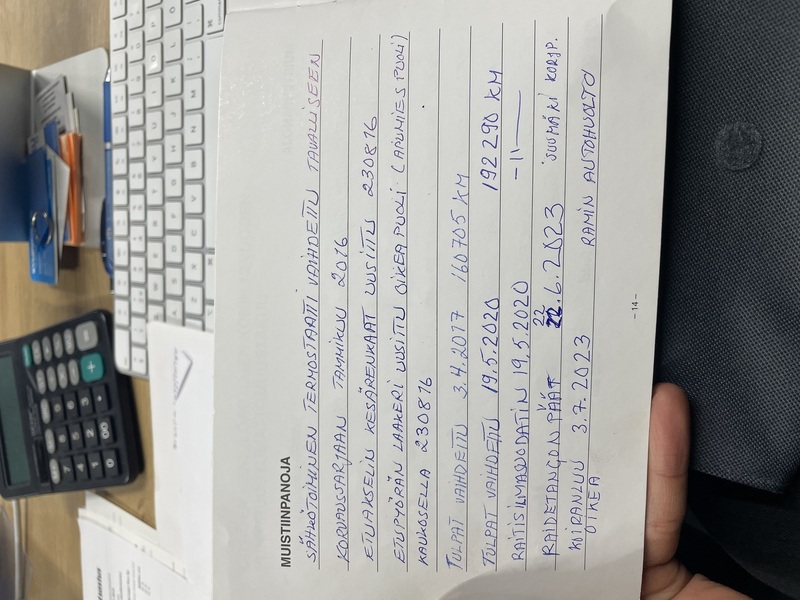 MUISTIINPANOJA
SÄHKÖTOIMINEN TERMOSTAATTI VAIHDETTU TAVALLISEEN
KORVAUSSARJAAN TAMMIKUU 2016
ETUAKSELIN KESÄRENKAAT UUSITTU 230816
ETUPYÖRÄN LAAKERI UUSITTU OIKEA PUOLI (APUMIES PUOLI)
KAUKOSELLA 230816
TULPAT VAIHDETTU 3.4.2017 160705 KM
TULPAT VAIHDETTU 19.5.2020 192290 KM
RAITISILMASUODATIN 19.5.2020 -11-
22
RAIDETANGON PÄÄT 22.6.2023 SUOMÄKI KORJP.
KOIRANLUU 3.7.2023 RAMIN AUTOHUOLTO
OIKEA
- 14 -